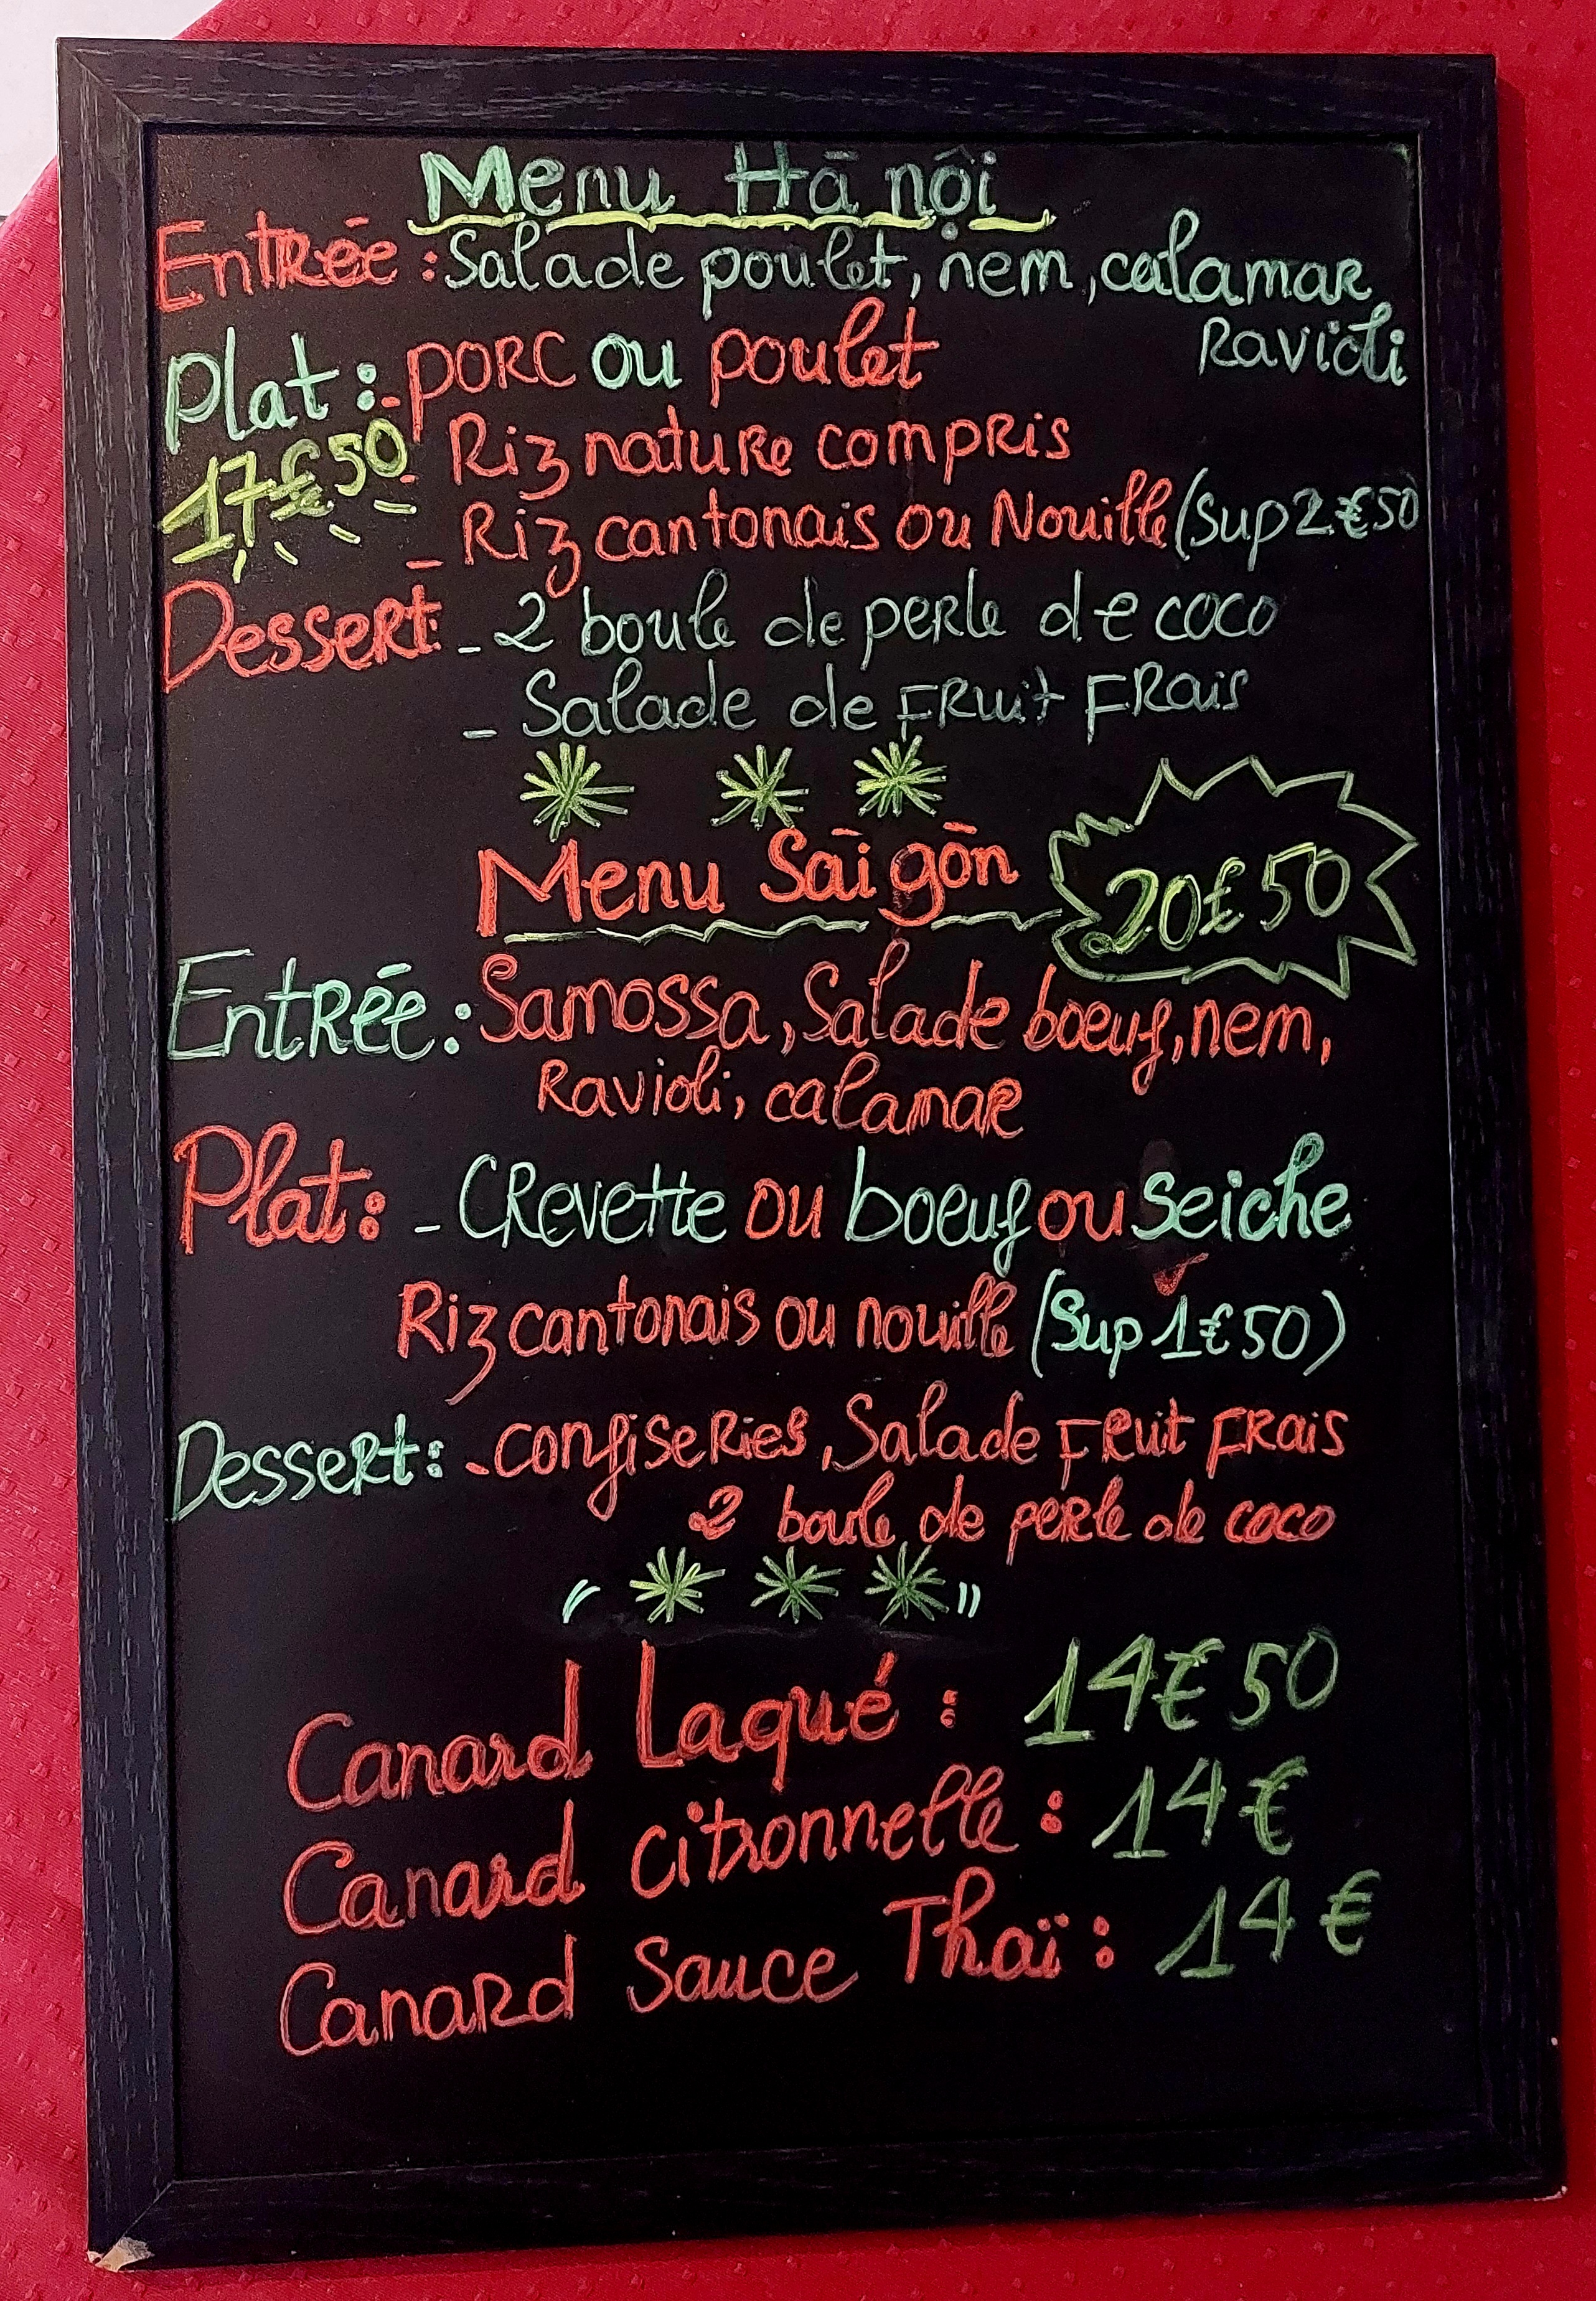 Menu Hā nội
Entrēe : Salade poulet, nem, calamar
Ravioli
Plat : - porc ou poulet
17€50 - Riz nature compris
- Riz cantonais ou Nouille (Sup 2€50
Dessert : - 2 boule de perle de coco
- Salade de Fruit Frais
Menu Sāi gōn 20€50
Entrēe : Samossa, Salade boeuf, nem,
Ravioli, calamar
Plat : - Crevette ou boeuf ou seiche
Riz cantonais ou nouille (Sup 1€50)
Dessert : - confiseries, Salade Fruit Frais
2 boule de perle de coco
Canard Laqué : 14€50
Canard citronnelle : 14€
Canard Sauce Thaï : 14€